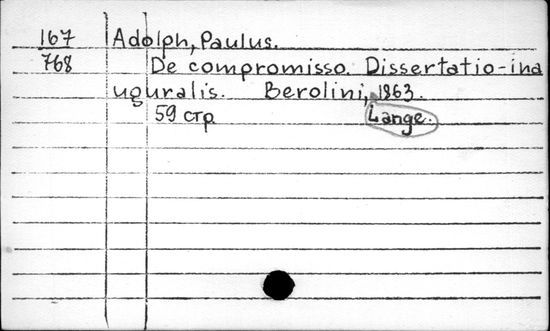 167 Adolph, Paulus.
768 De compromisso. Dissertatio-ina
uguralis. Berolini, 1863.
59 стр. Lange.